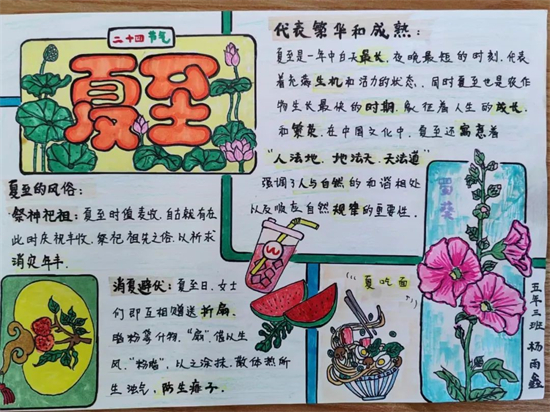 二十四节气
夏至
代表繁华和成熟：
夏至是一年中白天最长，夜晚最短的时刻，代表
着充满生机和活力的状态，同时夏至也是农作
物生长最快的时期，象征着人生的成长
和繁荣，在中国文化中，夏至还寓意着
“人法地，地法天，天法道”
强调了人与自然的和谐相处
以及顺应自然规律的重要性。
夏至的风俗：
祭神祀祖：夏至时值麦收，自古就有在
此时庆祝丰收、祭祀祖先之俗，以祈求
消灾年丰。
消夏避伏：夏至日，女士
们即互相赠送折扇、
脂粉等什物，“扇”借以生
风，“粉脂”，以之涂抹，散体热所
生浊气，防生痱子。
夏吃面
蜀葵
五年三班